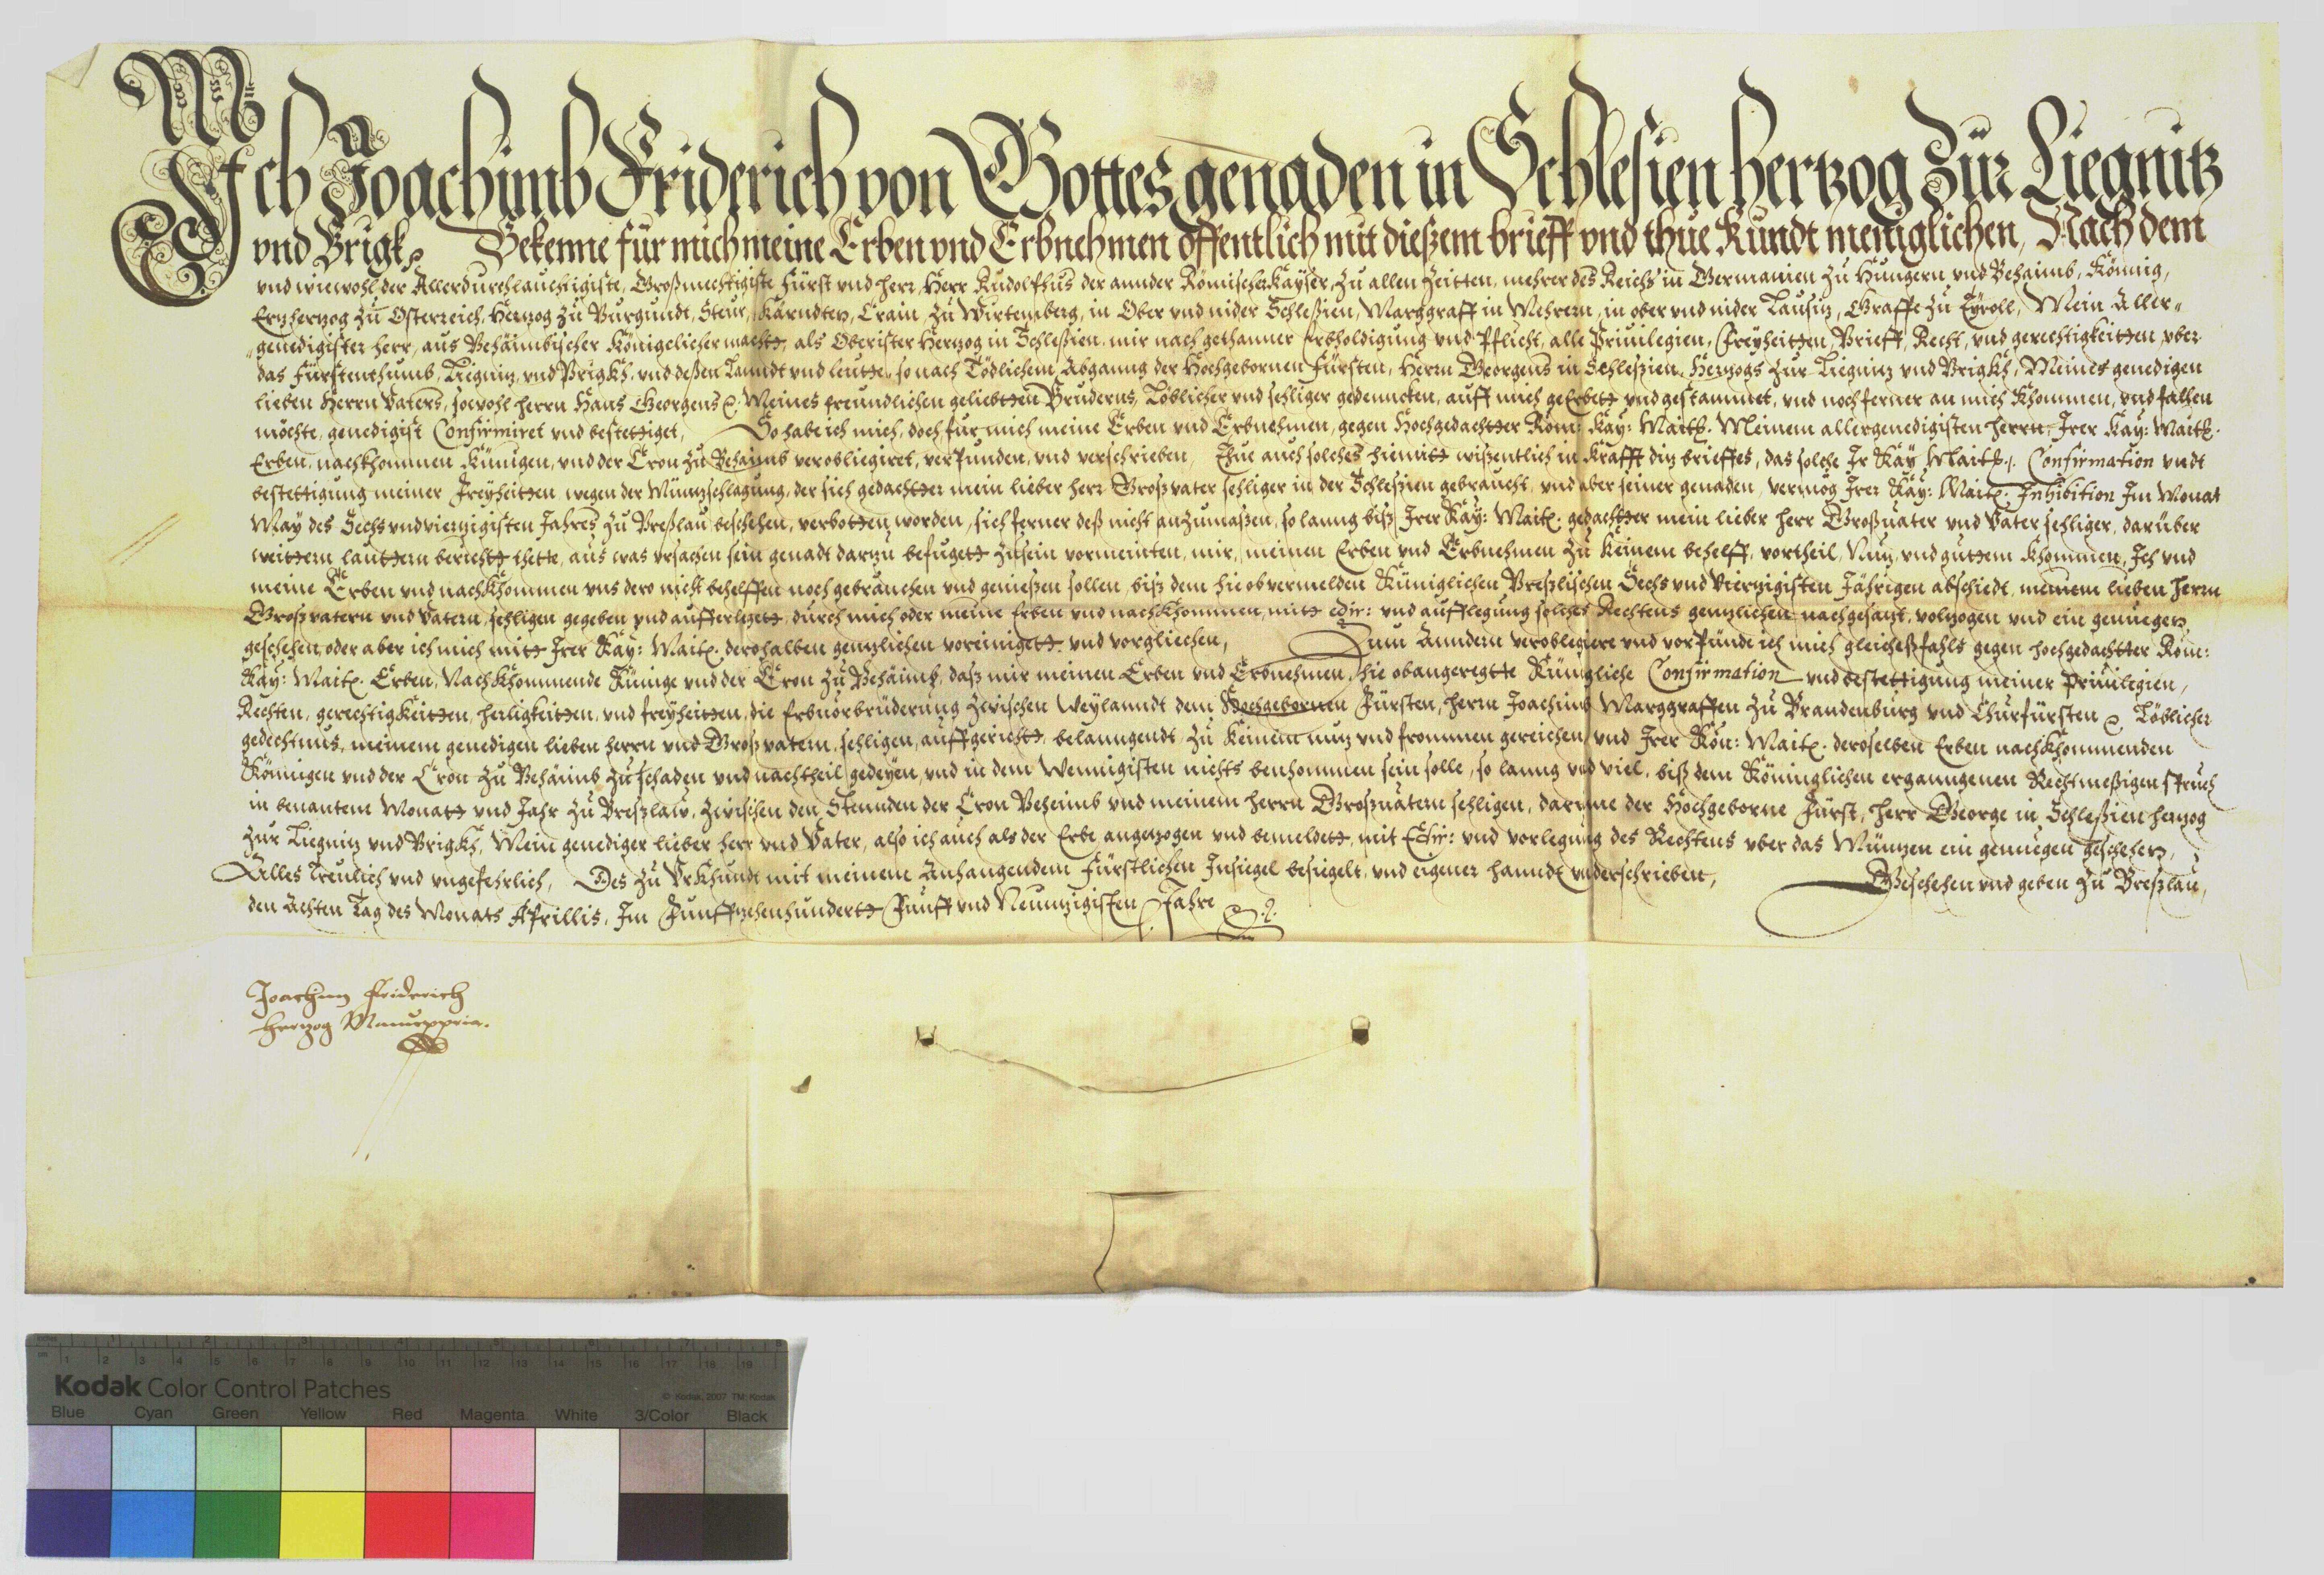 Ich Joachimb Friderich von Gottes genaden in Schlesien hertzog Zür Liegnitz
vnd Brigk Bekenne für mich meine Erben vnd Erbnehmen öffentlich mit dießem brieff vnd thue Kundt meniglichen, Nach dem
vnd wiewohl der Allerdurchlauchtigiste, Großmechtigiste Fürst vnd herr, Herr Rudolphus der annder Römischer Kayser, zu allen Zeitten, mehrer des Reichs in Germanien zu Hungern vnd Behaimb, König,
Erzherzog zu Osterreich, Herzog zu Burgundt, Steur, Kärndten, Crain, zu Wirtemberg, in Ober vnd nider Schleßien, Marggraff in Mehrern, in ober vnd nider Lausitz, Graffe zu Tyroll, Mein Aller-
genedigister herr, aus Behäimbischer Königclicher macht, als Oberister Herzog in Schleßien, mir nach gethanner erbholdigung vnd Pflicht, alle Priuilegien, Freyheitten, Brieff, Recht, vnd gerechtigkeitten vber
das Fürstenthumb, Liegnitz, vnd Brigkh, vnd deßen Lanndt vnd leutte, so nach Tödlichem Abganng der Hochgebornen Fürsten, Herrn Georgens in Schleßien, Herzogs zur Liegnitz vnd Brigkh, Meines genedigen
lieben Herrn Vaters, sowohl herrn Hans Georgens Meines freundlichen geliebtten Bruderns, Löblicher vnd sehliger gedencken, auff mich geErbet vnd gestammet, vnd noch ferner an mich Khommen, vnd fallen
möchte, genedigist Confirmiret vnd bestettiget, So habe ich mich, doch fur mich meine Erben vnd Erbnehmen, gegen Hochgedachter Röm: Kay: Maitt. Meinem allergenedigisten herrn, Irer Kay: Maitt.
Erben, nachkhommen Künigen, vnd der Cron zu Behaimb verobliegiret, verpunden, vnd verschrieben, Thue auch solches hiemitt wißentlich in Krafft diz brieffes, das solche Ir Kay Maitt. Confirmation vndt
bestettigung meiner Freyheitten wegen der Münzschlagung, der sich gedachter mein lieber herr Großvater sehliger in der Schleßien gebraucht, vnd aber seiner genaden, vermög Irer Kay: Maitt. Inhibition Im Monat
May des Sechs vnd vierzigisten Jahres zu Breßlau beschehen, verbotten worden, sich ferner deß nicht anzumaßen, so lanng biß Irer Kay: Maitt. gedachter mein lieber herr Großuater vnd Vater sehliger, darüber
weittern lauttern bericht thette, aus was vrsachen sein genadt darzu befuget zusein vormeinten, mir, meinen Erben vnd Erbnehmen zu Keinem behelff, vortheil, Nuz, vnd guttem Khommen, Ich vnd
meine Erben vnd nachKhommen vns dero nicht behelffen noch gebrauchen vnd genießen sollen, biß dem hieob vermelden Küniglichen Breßlischen Sechs vnd Vierzigisten Jährigen abschiedt, meinem lieben Herrn
Großvatern vnd Vatern, sehligen gegeben vnd aufferleget, durch mich oder meine Erben vnd nachKhommen, mitt edir: vnd aufflegung solches Rechtens genzlichen nachgesazt, volzogen vnd ein genuegen
geschehen, oder aber ich mich mitt Irer Kay: Maitt. derohalben genzlichen voreinigett vnd vorgliechen, Zum Anndern verobliegiere vnd vorpünde ich mich gleicheßfahls gegen hochgedachter Röm:
Kay: Maitt. Erben, Nachkhommende Künige vnd der Cron zu Behäimb, daß mir meinen Erben vnd Erbnehmen, hie obangeregtte Künigliche Confirmation vnd bestettigung meiner Priuilegien,
Rechten, gerechtigkeitten, herligkeitten, vnd freyheitten, die Erbuorbrüderung zwischen Weylanndt dem Hochgebornen Fürsten, herrn Joachimb Marggraffen zu Brandenburg vnd Churfürsten Löblicher
gedechtnus, meinem genedigen lieben herrn vnd Großvatern, sehligen, auffgericht, belanngendt, zu Keinem nuz vnd frommen gereichen, vnd Irer Kön: Maitt. deroselben Erben nachKhommenden
Königen vnd der Cron zu Behäimb zu schaden vnd nachtheil gedeyen, vnd in dem Wennigisten nichts benhommen sein solle, so lanng vnd viel, biß dem Königlichen erganngenen Rechtmeßigen spruch
in benantem Monatt vnd Jahr zu Breßlaw, zwischen den Stennden der Cron Beheimb vnd meinem herrn Großuatern sehligen, darinne der Hochgeborne Fürst, herr George in Schleßien herzog
zur Liegnitz vnd Brigkh, Mein genediger lieber herr vnd Vater, also ich auch als der Erbe angezogen vnd bemeldett, mit Edir: vnd vorlegung des Rechtens vber das Münzen ein genuegen geschehen,
Alles treulich vnd vngefehrlich, Des zu VrKhundt mit meinem Anhangendem Fürstlichen Insiegel besiegelt, vnd eigener handt vnderschrieben, Geschehen vnd geben zu Breßlau,
den Achten Tag des Monats Aprillis, Im Funffzehenhundertt Funff vnd Neunzigisten Jahre
Joachim Friderich
Herzog Manuppria.
Kodak Color Control Patches
© Kodak, 2007 TM: Kodak
Blue Cyan Green Yellow Red Magenta White 3/Color Black